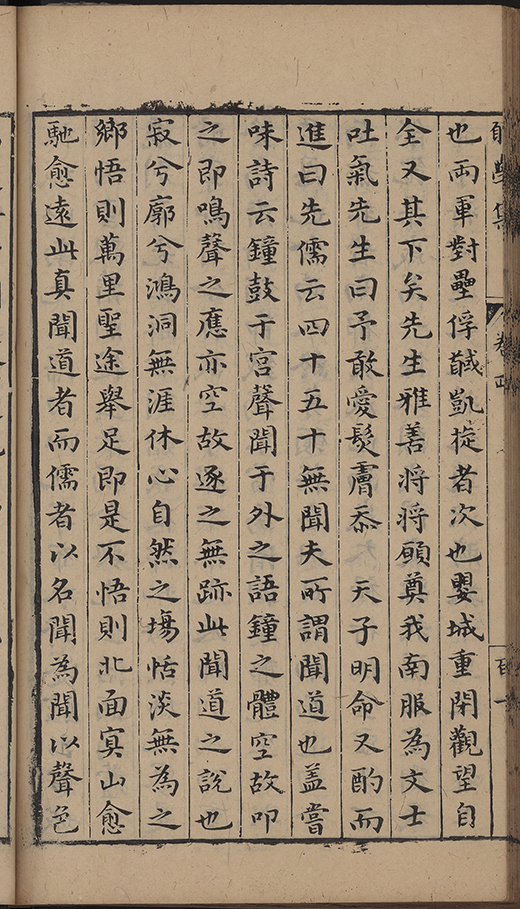 集
卷四
也兩軍對壘俘馘凱旋者次也嬰城重閉觀望自
全又其下矣先生雅善將將願奠我南服為文士
吐氣先生曰予敢愛髮膚忝 天子明命又酌而
進曰先儒云四十五十無聞夫所謂聞道也盖嘗
味詩云鐘鼓于宫聲聞于外之語鐘之體空故叩
之即鳴聲之應亦空故逐之無跡此聞道之說也
寂兮廓兮鴻洞無涯休心自然之塲恬淡無為之
鄉悟則萬里聖途舉足即是不悟則北面寘山愈
馳愈遠此真聞道者而儒者以名聞為聞以聲色